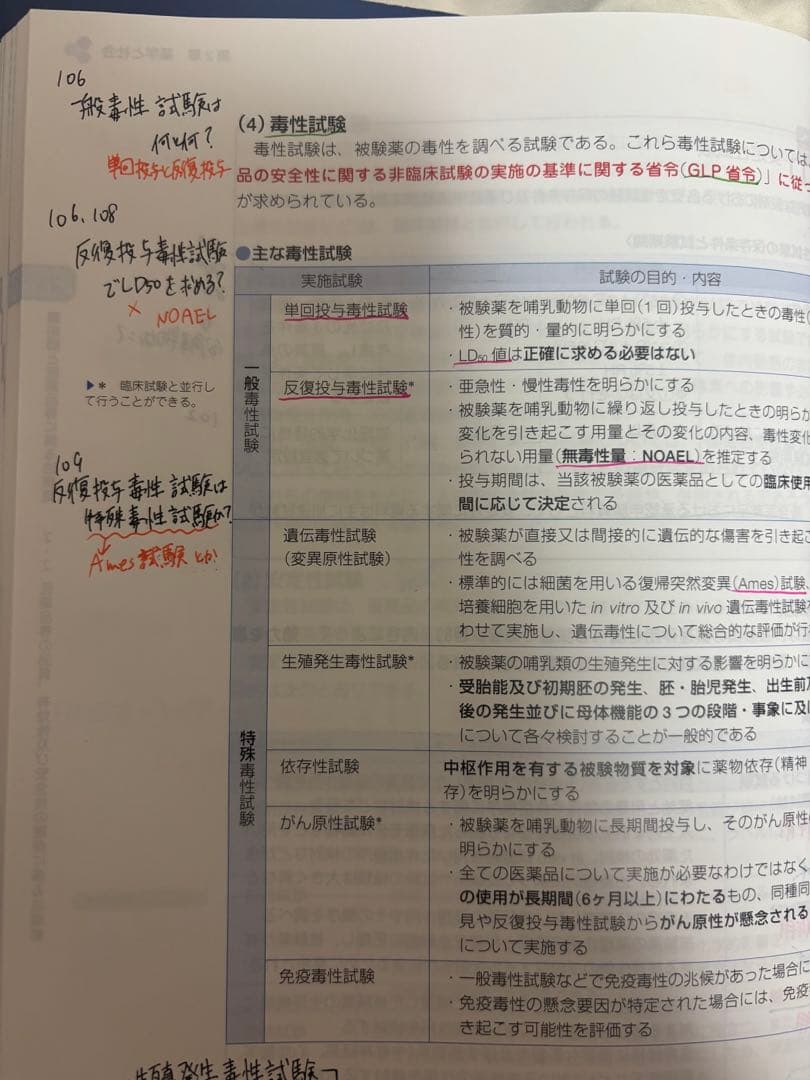 106
一般毒性試験は
何と何?
単回投与と反復投与
106.108
反復投与毒性試験
でLD50を求める?
×
NOAEL
▶* 臨床試験と並行し
て行うことができる。
109
反復投与毒性試験は
特殊毒性試験か?
Ames試験とか
(4)毒性試験
毒性試験は、被験薬の毒性を調べる試験である。これら毒性試験については
品の安全性に関する非臨床試験の実施の基準に関する省令(GLP省令)」に従っ
が求められている。
●主な毒性試験
実施試験
試験の目的・内容
一般毒性試験
単回投与毒性試験
・被験薬を哺乳動物に単回(1回)投与したときの毒性(
性)を質的・量的に明らかにする
・LD50値は正確に求める必要はない
反復投与毒性試験*
・亜急性・慢性毒性を明らかにする
・被験薬を哺乳動物に繰り返し投与したときの明らか
変化を引き起こす用量とその変化の内容、毒性変化
られない用量(無毒性量:NOAEL)を推定する
・投与期間は、当該被験薬の医薬品としての臨床使用
間に応じて決定される
特殊毒性試験
遺伝毒性試験
(変異原性試験)
・被験薬が直接又は間接的に遺伝的な傷害を引き起こ
性を調べる
・標準的には細菌を用いる復帰突然変異(Ames)試験、
培養細胞を用いた in vitro 及び in vivo 遺伝毒性試験を
わせて実施し、遺伝毒性について総合的な評価が行
生殖発生毒性試験*
・被験薬の哺乳類の生殖発生に対する影響を明らかに
・受胎能及び初期胚の発生、胚・胎児発生、出生前及
後の発生並びに母体機能の3つの段階・事象に及ぼ
について各々検討することが一般的である
依存性試験
中枢作用を有する被験物質を対象に薬物依存(精神
存)を明らかにする
がん原性試験*
・被験薬を哺乳動物に長期間投与し、そのがん原性の
明らかにする
・全ての医薬品について実施が必要なわけではなく
の使用が長期間(6ヶ月以上)にわたるもの、同種同
見や反復投与毒性試験からがん原性が懸念される
について実施する
免疫毒性試験
・一般毒性試験などで免疫毒性の兆候があった場合に
・免疫毒性の懸念要因が特定された場合には、免疫
き起こす可能性を評価する
生殖発生毒性試験